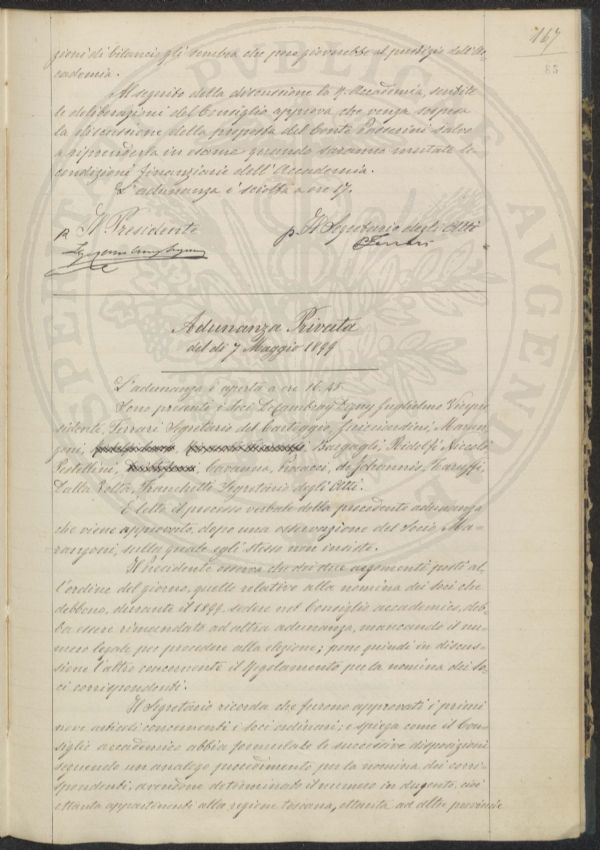 167
85
zioni di bilancio gli sembra che poco gioverebbe al prestigio dell'Ac-
cademia.
A seguito della discussione la R. Accademia, sentite
le deliberazioni del Consiglio approva che venga sospesa
la discussione della proposta del Conte Passerini salvo
a riprenderla in esame quando saranno mutate le
condizioni finanziarie dell'Accademia.
L'adunanza è sciolta a ore 17.
Il Presidente
p. Il Segretario degli Atti
CFerrari
Adunanza Privata
del dì 7 Maggio 1899
L'adunanza è aperta a ore 16.45.
Sono presenti i Soci Guglielmo Vicepre-
sidente, Ferrari Segretario del Carteggio, Maran-
goni, Bargagli, Ridolfi Niccolò
Pestellini, Cavanna, de Johannis, Karuffi,
Dalla Volta, Franchetti Segretario degli Atti.
È letto il processo verbale della precedente adunanza
che viene approvato, dopo una osservazione del Socio Ma-
rangoni, sulla quale egli stesso non insiste.
Il Presidente osserva che dei due argomenti posti al-
l'ordine del giorno, quello relativo alla nomina dei soci che
debbono, durante il 1899 sedere nel Consiglio accademico, deb-
ba essere rimandato ad altra adunanza, mancando il nu-
mero legale per procedere alla elezione; pone quindi in discus-
sione l'altro concernente il Regolamento per la nomina dei So-
ci corrispondenti.
Il Segretario ricorda che furono approvati i primi
nove articoli concernenti i soci ordinari; e spiega come il Con-
siglio accademico abbia formulate le successive disposizioni
seguendo un analogo procedimento per la nomina dei corri-
spondenti, avendone determinato il numero in dugento, cioè
ottanta appartenenti alla regione toscana, ottanta ad altre provincie